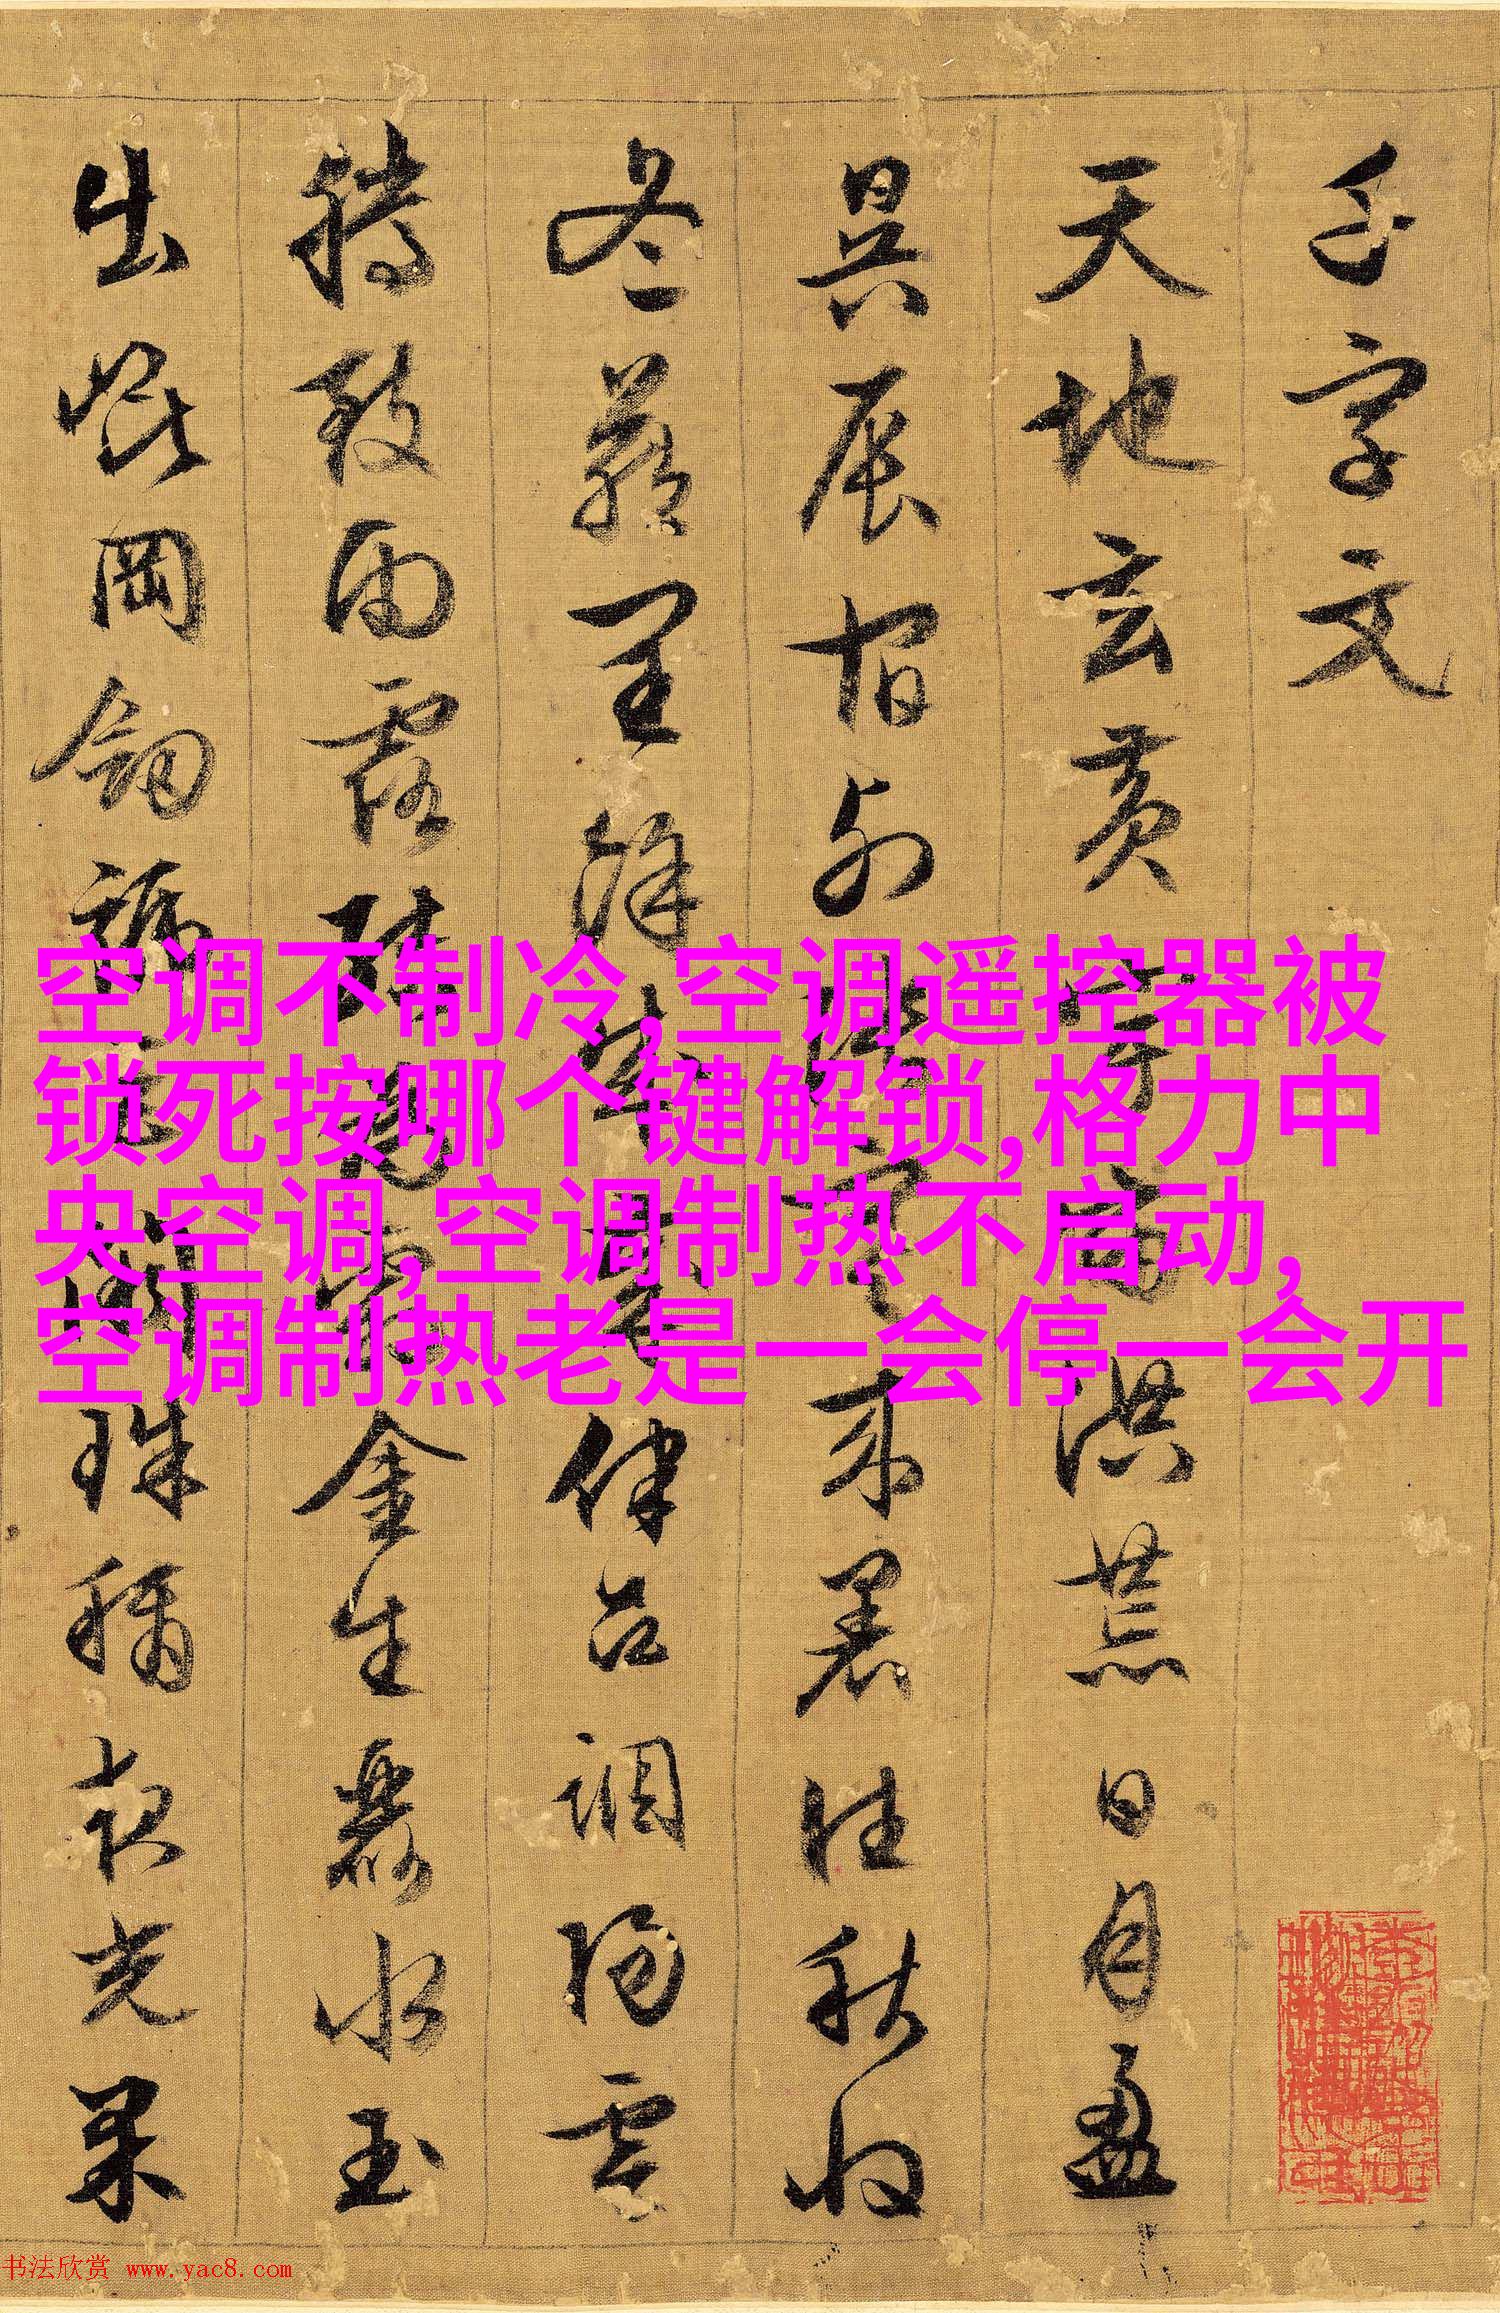 千字文
天地玄黄宇宙洪荒日月盈
昃辰宿列張寒来暑往秋收
冬藏閏餘成歲律召調陽雲
騰致雨露結為霜金生麗水玉
出崑岡劍號巨闕珠稱夜光果
空调不制冷,空调遥控器被
锁死按哪个键解锁,格力中
央空调,空调制热不启动,
空调制热老是一会停一会开
书法欣赏 www.yac8.com